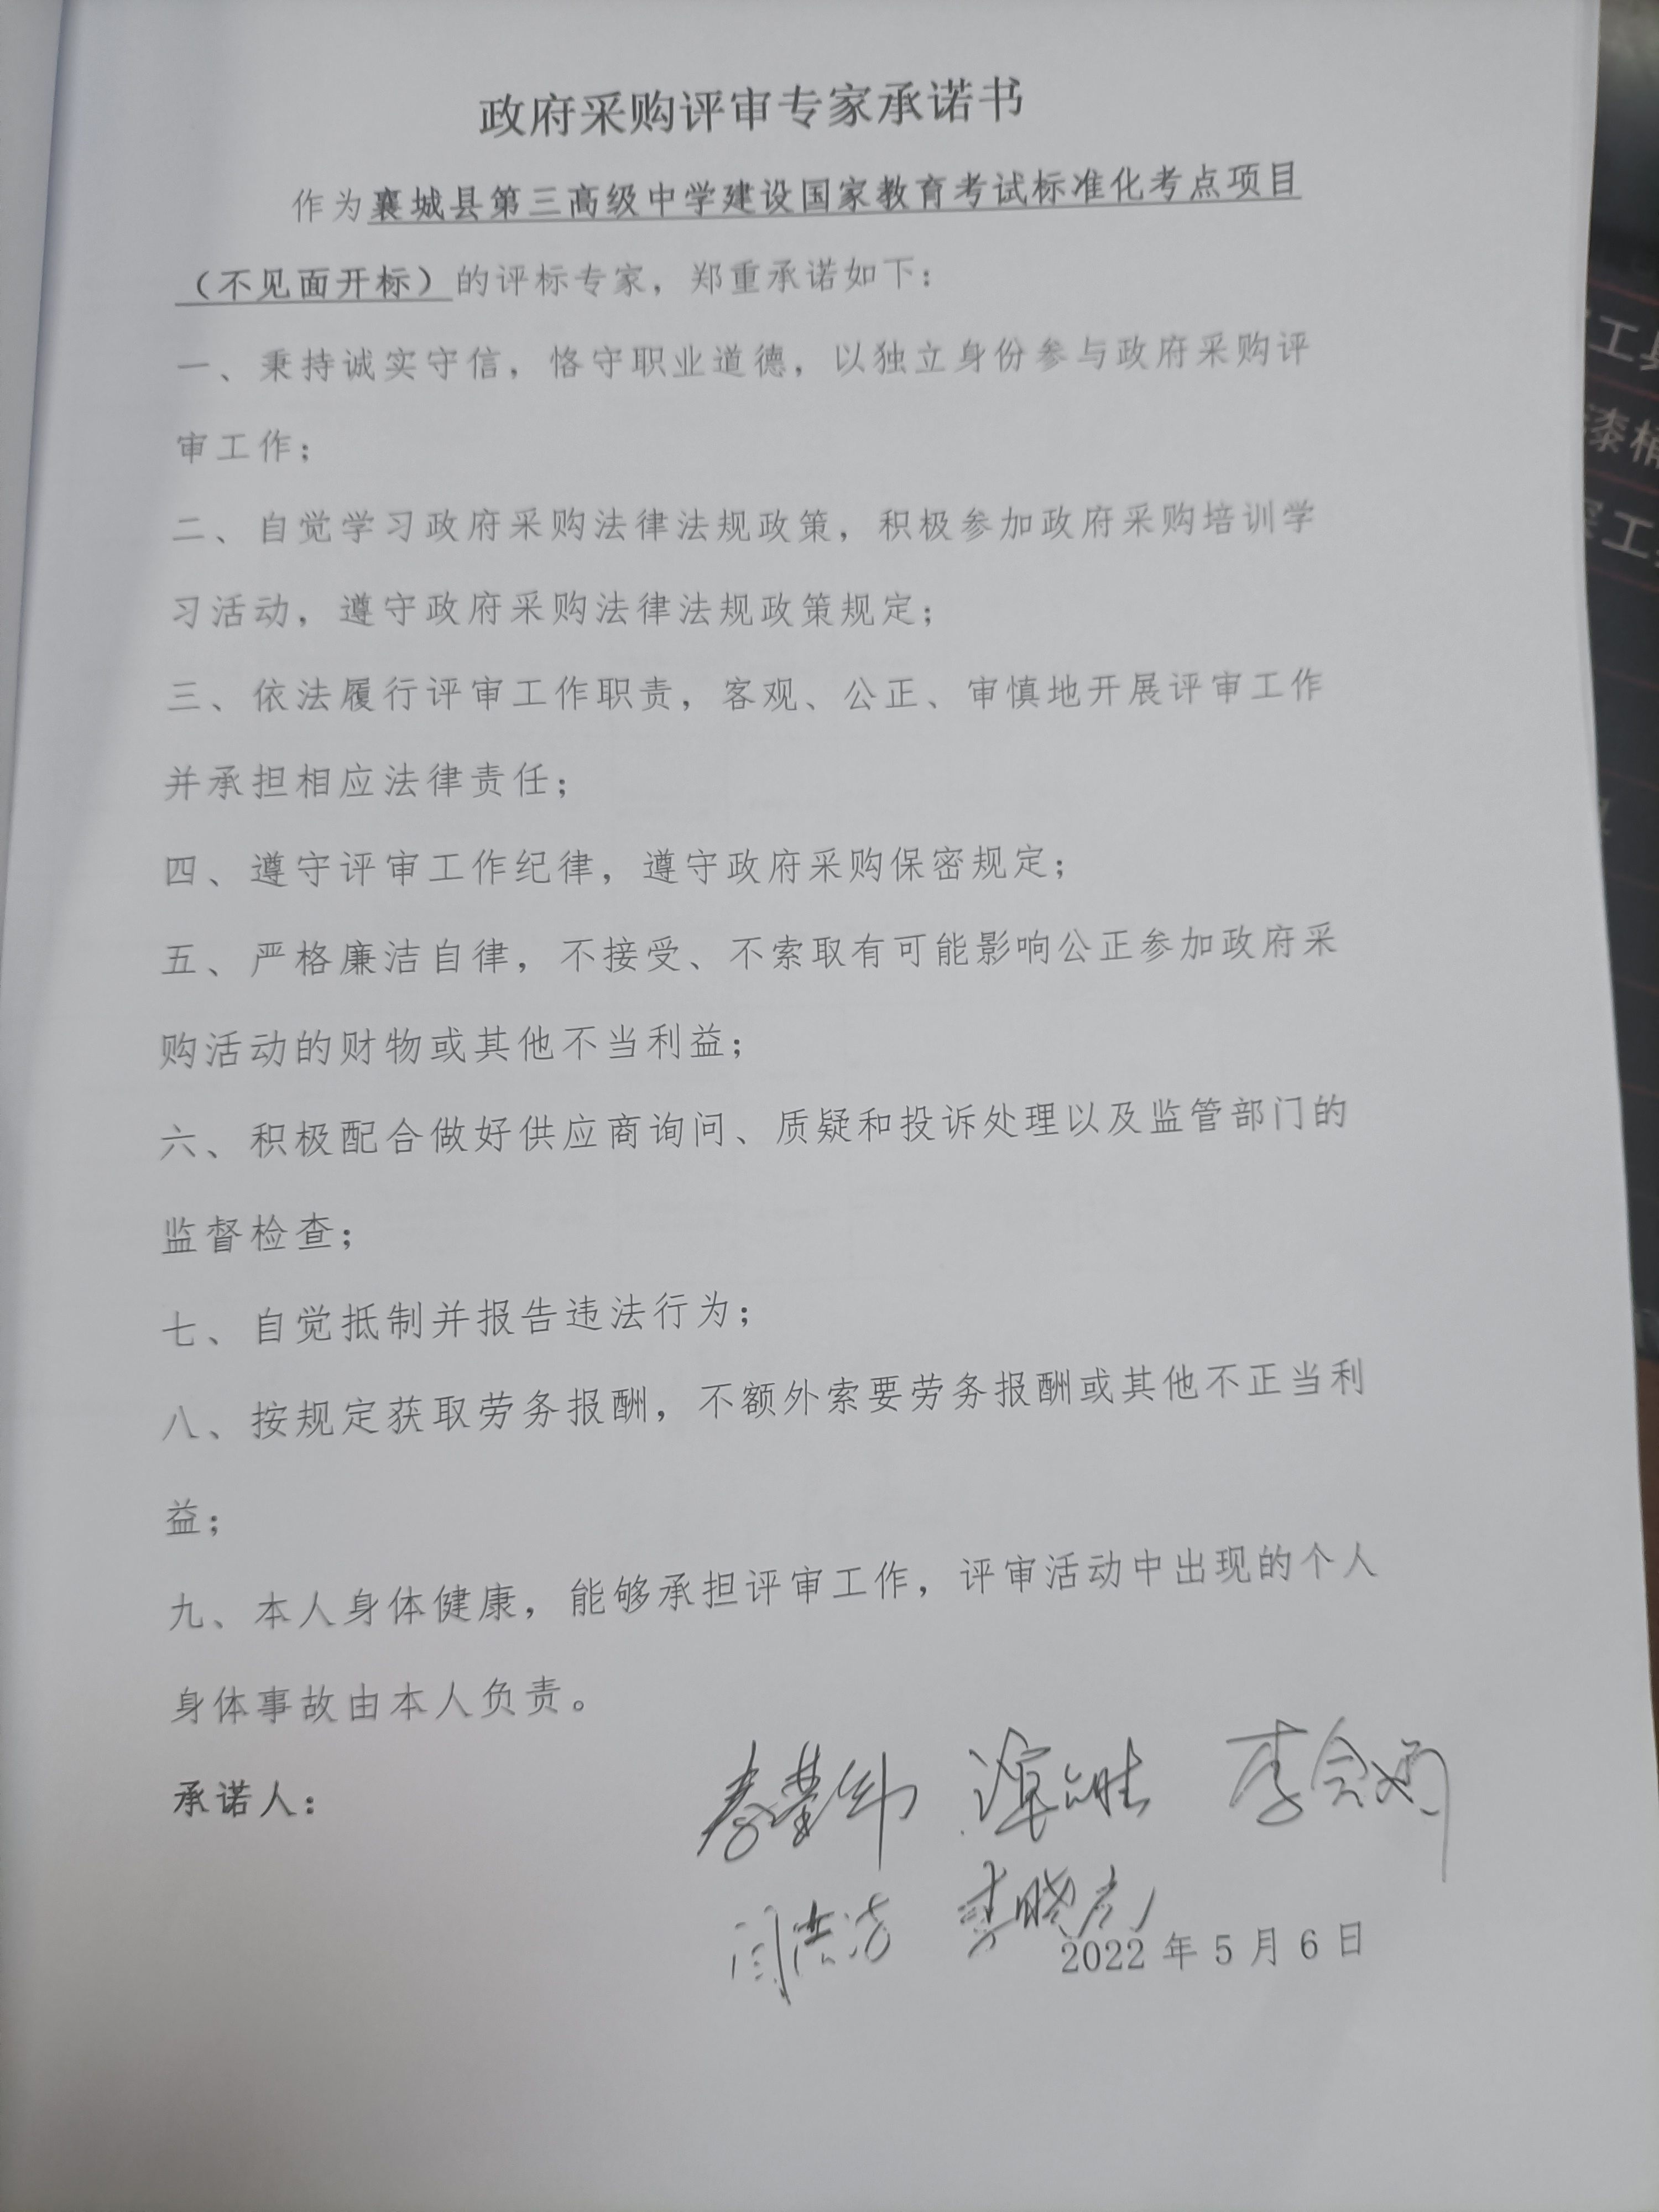 政府采购评审专家承诺书
作为襄城县第三高级中学建设国家教育考试标准化考点项目
（不见面开标）的评标专家，郑重承诺如下：
一、秉持诚实守信，恪守职业道德，以独立身份参与政府采购评
审工作；
二、自觉学习政府采购法律法规政策，积极参加政府采购培训学
习活动，遵守政府采购法律法规政策规定；
三、依法履行评审工作职责，客观、公正、审慎地开展评审工作
并承担相应法律责任；
四、遵守评审工作纪律，遵守政府采购保密规定；
五、严格廉洁自律，不接受、不索取有可能影响公正参加政府采
购活动的财物或其他不当利益；
六、积极配合做好供应商询问、质疑和投诉处理以及监管部门的
监督检查；
七、自觉抵制并报告违法行为；
八、按规定获取劳务报酬，不额外索要劳务报酬或其他不正当利
益；
九、本人身体健康，能够承担评审工作，评审活动中出现的个人
身体事故由本人负责。
承诺人：
李晓彪
2022年5月6日
工具
漆桶
工